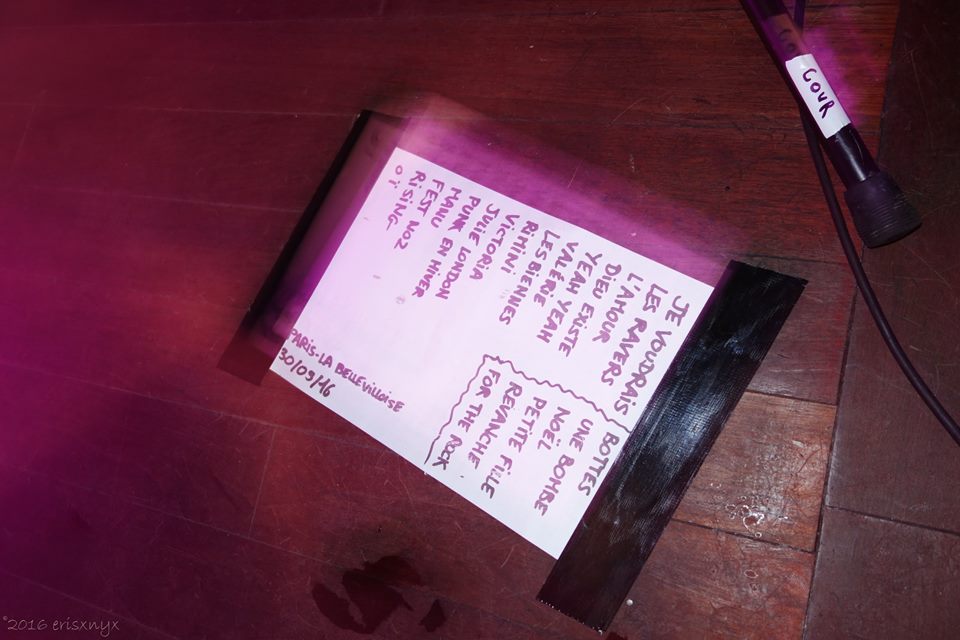 JE VOUDRAIS
LES RAVERS
L'AMOUR
DIEU EXISTE
YEAH YEAH
VALÉRIE
LES BIENNES
RIMINI
VICTORIA
JULIE LONDON
PUNK EN HIVER
MANU
FEST NO2
RISING-
OT
BOTTES
UNE BOMBE
NOËL
PETITE FILLE
REVANCHE
FOR THE ROCK
PARIS-LA BELLEVILLOISE
30/09/16
COUR
©2016 erisxnyx